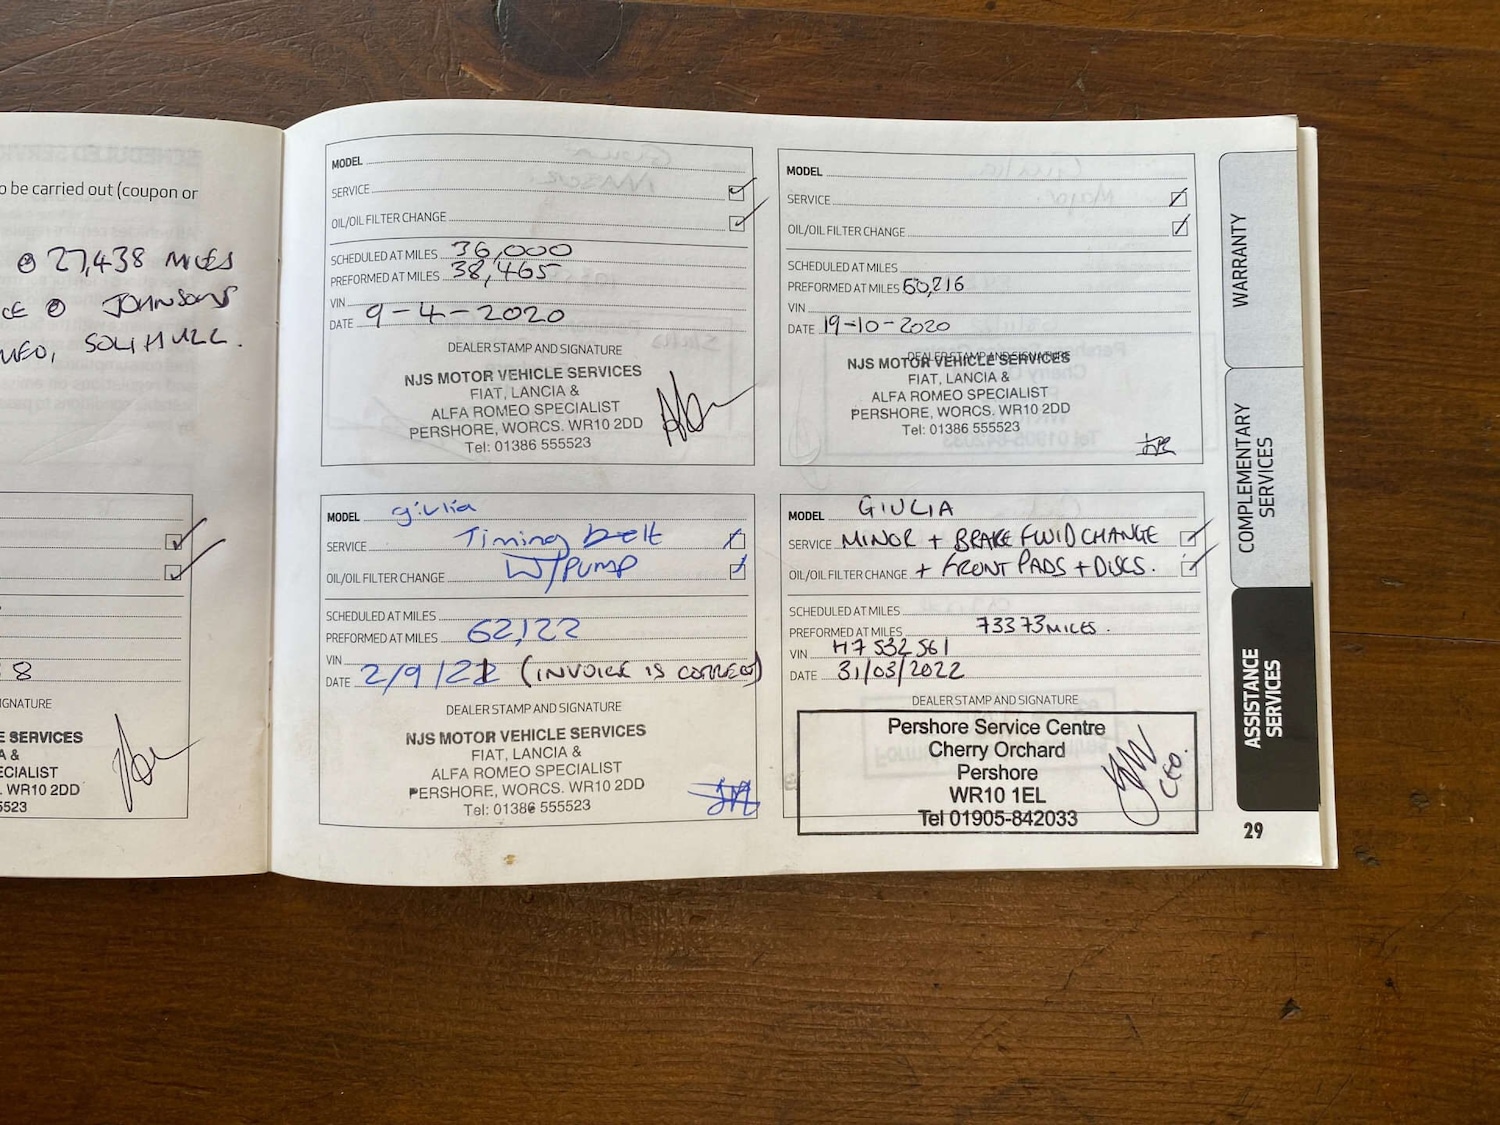 o be carried out (coupon or
@ 27,438 MILES
CE @ JOHNSONS
MEO, SOLIHULL.
8
GNATURE
E SERVICES
A &
ECIALIST
. WR10 2DD
5523
MODEL
SERVICE
OIL/OIL FILTER CHANGE
SCHEDULED AT MILES 36,000
PREFORMED AT MILES 38,465
VIN
DATE 9-4-2020
DEALER STAMP AND SIGNATURE
NJS MOTOR VEHICLE SERVICES
FIAT, LANCIA &
ALFA ROMEO SPECIALIST
PERSHORE, WORCS. WR10 2DD
Tel: 01386 555523
MODEL
SERVICE
OIL/OIL FILTER CHANGE
SCHEDULED AT MILES
PREFORMED AT MILES 60,216
VIN
DATE 19-10-2020
DEALER STAMP AND SIGNATURE
NJS MOTOR VEHICLE SERVICES
FIAT, LANCIA &
ALFA ROMEO SPECIALIST
PERSHORE, WORCS. WR10 2DD
Tel: 01386 555523
MODEL giulia
SERVICE Timing belt
OIL/OIL FILTER CHANGE W/PUMP
SCHEDULED AT MILES
PREFORMED AT MILES 62,122
VIN
DATE 2/9/21 (INVOICE IS CORRECT)
DEALER STAMP AND SIGNATURE
NJS MOTOR VEHICLE SERVICES
FIAT, LANCIA &
ALFA ROMEO SPECIALIST
PERSHORE, WORCS. WR10 2DD
Tel: 01386 555523
MODEL GIULIA
SERVICE MINOR + BRAKE FLUID CHANGE
OIL/OIL FILTER CHANGE + FRONT PADS + DISCS.
SCHEDULED AT MILES
PREFORMED AT MILES 73373 MILES.
VIN H7532561
DATE 31/03/2022
DEALER STAMP AND SIGNATURE
Pershore Service Centre
Cherry Orchard
Pershore
WR10 1EL
Tel 01905-842033
CEO.
WARRANTY
COMPLEMENTARY
SERVICES
ASSISTANCE
SERVICES
29